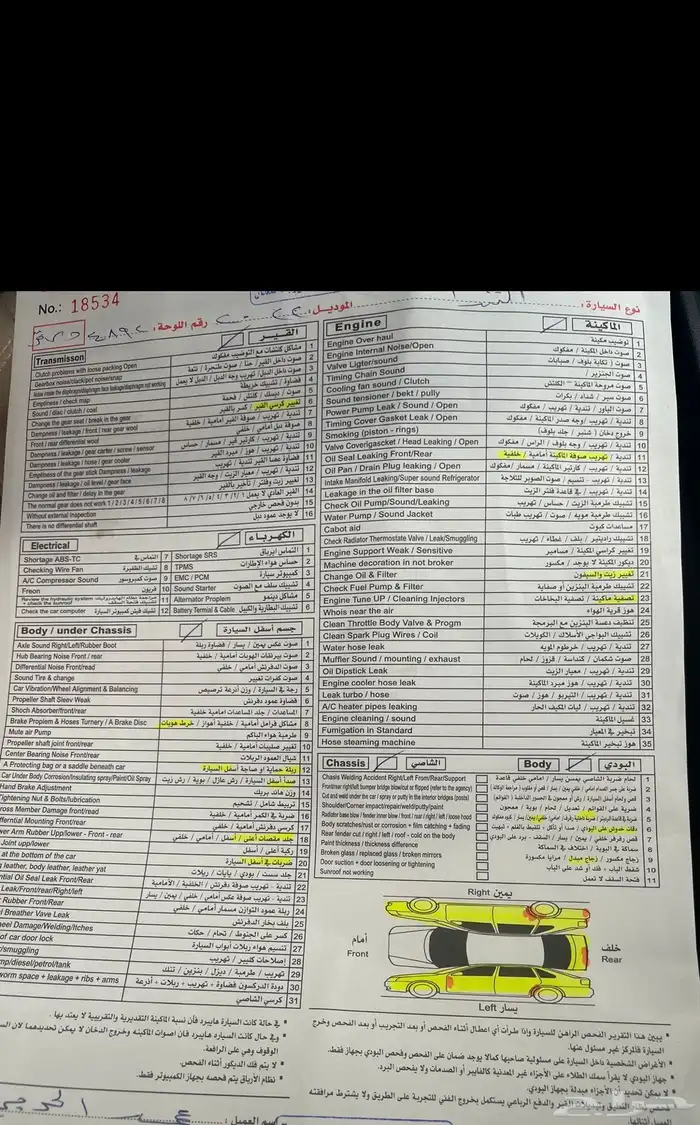 No.: 18534
نوع السيارة:
الموديل:
رقم اللوحة:
Engine
الماكينة
Engine Over haul توضيب مكينة 1
Engine Internal Noise/Open صوت داخل المكينة / مفكوك 2
Valve Ligter/sound 3
Timing Chain Sound صوت الجنزير 4
Cooling fan sound / Clutch صوت مروحة المكينة - الكلتش 5
Sound tensioner / bekt / pully صوت سير / شداد / بكرات 6
Power Pump Leak / Sound / Open صوت الباور / تندية / تهريب / مفكوك 7
Timing Cover Gasket Leak / Open تندية / تهريب / وجه صدر المكينة / مفكوك 8
Smoking (piston - rings) خروج دخان (شنبر / جلد بلوف) 9
Valve Coverigascket / Head Leaking / Open تندية / تهريب / وجه بلوف / الراس / مفكوك 10
Oil Seal Leaking Front/Rear تندية / تهريب صوفة الماكينة أمامية / خلفية 11
Oil Pan / Drain Plug leaking / Open تندية / تهريب / كارتير المكينة / مسمار / مفكوك 12
Intake Manifold Leaking/Super sound Refrigerator تندية / تهريب - تنسيم / صوت الصوبر للثلاجة 13
Leakage in the oil filter base تندية / تهريب / في قاعدة فلتر الزيت 14
Check Oil Pump/Sound/Leaking تشييك طرمبة الزيت / حساس / تهريب 15
Water Pump / Sound Jacket تشييك طرمبة مويه / صوت / تهريب طبات 16
Cabot aid مساعدات كبوت 17
Check Radiator Thermostate Valve / Leak/Smuggling تشييك راديتير / بلف / غطاء / تهريب 18
Engine Support Weak / Sensitive تغيير كراسي المكينة / مسامير 19
Machine decoration in not broker ديكور المكينة لا يوجد / مكسور 20
Change Oil & Filter تغيير زيت والسيفون 21
Check Fuel Pump & Filter تشييك طرمبة البنزين أو صفاية 22
Engine Tune UP / Cleaning Injectors تصفية ماكينة / تصفية البخاخات 23
Whois near the air هوز قربة الهواء 24
Clean Throttle Body Valve & Progm تنظيف دعسة البنزين مع البرمجة 25
Clean Spark Plug Wires / Coil تشييك البواجي الأسلاك / الكويلات 26
Water hose leak تندية / تهريب / خرطوم المويه 27
Muffler Sound / mounting / exhaust صوت شكمان / كنداسة / قزوز / لحام 28
Oil Dipstick Leak تندية / تهريب / معيار الزيت 29
Engine cooler hose leak تندية / تهريب / هوز مبرد المكينة 30
Leak turbo / hose تندية / تهريب / التيربو / هوز / صوت 31
A/C heater pipes leaking تندية / تهريب / ليات المكيف الحار 32
Engine cleaning / sound غسيل الماكينة 33
Fumigation in Standard تبخير في المعيار 34
Hose steaming machine هوز تبخير الماكينة 35
Transmisson
القير
Clutch problems with loose packing Open مشاكل كلتشات مع التوضيب مفكوك 1
Gearbox noise/clack/pot noise/snap 2
3
Emptiness / check map فضاوة / تشييك خريطة 4
Sound / disc / clutch / coal صوت / ديسك / كلتش / فحمة 5
Change the gear seat / break in the gear تغيير كرسي القير / كسر بالقير 6
Dampness / leakage / front / rear gear wool تندية / تهريب / صوفة القير امامية / خلفية 7
Front / rear differential wool صوفة دبل أمامي / خلفي 8
Dampness / leakage / gear carter / screw / sensor تندية / تهريب / كارتير قير / مسمار / حساس 9
Dampness / leakage / hose / gear cooler تندية / تهريب / هوز / مبرد القير 10
Emptiness of the gear stick Dampness / leakage فضاوة عصا القير تندية / تهريب 11
Dampness / leakage / oil level / gear face تندية / تهريب / معيار الزيت / وجه القير 12
Change oil and filter / delay in the gear تغيير زيت وفلتر / تأخير بالقير 13
The normal gear does not work 1/2/3/4/5/6/7/8 القير العادي لا يعمل ١/٢/٣/٤/٥/٦/٧/٨ 14
Without external inspection بدون فحص خارجي 15
There is no differential shaft لا يوجد عمود دبل 16
Electrical
الكهرباء
Shortage ABS-TC التماس في 7 Shortage SRS التماس ايرباق 1
Checking Wire Fan تشييك الظفيرة 8 TPMS حساس هواء الإطارات 2
A/C Compressor Sound صوت كمبروسور 9 EMC / PCM كمبيوتر سيارة 3
Freon فريون 10 Sound Starter تشييك سلف مع الصوت 4
11 Alternator Proplem مشاكل دينمو 5
Check the car computer تشييك فيش كمبيوتر السيارة 12 Battery Termial & Cable تشييك البطارية والكيبل 6
Body / under Chassis
جسم أسفل السيارة
Axle Sound Right/Left/Rubber Boot صوت عكس يمين / يسار / فضاوة ربلة 1
Hub Bearing Noise Front / rear صوت بيرنقات الهوبات امامية / خلفية 2
Differential Noise Front/read صوت الدفرنش أمامي / خلفي 3
Sound Tire & change صوت كفرات تغيير 4
Car Vibration/Wheel Alignment & Balancing رجة في السيارة / وزن أذرعة ترصيص 5
Propeller Shaft Sleev Weak فضاوة عمود دفرنش 6
Shoch Absorber/front/rear المساعدات / جلد المساعدات امامية / خلفية 7
Brake Proplem & Hoses Turnery / A Brake Disc مشاكل فرامل أمامية / خلفية أهواز / خرط هوبات 8
Mute air Pump طرمبة هواء الباكم 9
Propeller shaft joint front/rear تغيير صليبات أمامية / خلفية 10
Center Bearing Noise Front/rear شيال العمود الربلات 11
A Protecting bag or a saddle beneath car ربلة حماية او صاجة أسفل السيارة 12
Car Under Body Corrosion/Insulating spray/Paint/Oil Spray صدأ أسفل السيارة / رش عازل / بوية / رش زيت 13
Hand Brake Adjustment وزن هاند بريك 14
Tightening Nut & Bolts/lubrication تربيط شامل / تشحيم 15
Cross Member Damage front/read ضربة في الكمر أمامية / خلفية 16
Differntial Mounting Front/rear كرسي دفرنش أمامية / خلفية 17
Lower Arm Rubber Upp/lower - Front - rear جلد مقصات أعلى / أسفل / أمامي / خلفي 18
Joint upp/lower ركبة أعلى / أسفل 19
at the bottom of the car ضربات في أسفل السيارة 20
leather, body leather, leather yat جلد سست / بودي / يايات / ربلات 21
ential Oil Seal Leak Front/Rear تندية - تهريب صوفة دفرنش / الخلفية / الأمامية 22
Leak/Front/rear/Right/left تندية - تهريب صوفة عكس أمامي / خلفي / يمين / يسار 23
Rubber Front/Rear ربلة عمود التوازن مسمار أمامي / خلفي 24
l Breather Vave Leak بلف بخار الدفرنش 25
heel Damage/Welding/Itches كسر على الجنوط / لحام / حكات 26
of car door lock تنسيم هواء ربلات أبواب السيارة 27
r/smuggling إصلاحات كلبير / تهريب 28
mp/diesel/petrol/tank تهريب / طرمبة / ديزل / بنزين / تنك 29
worm space + leakage + ribs + arms دودة الدركسون فضاوة + تهريب + ربلات + أذرعة 30
كرسي الشاصي 31
Chassis
الشاصي
Body
البودي
Chasis Welding Accident Right/Left From/Rear/Support 1
Frontrear right/left bumper bridge blowout or flipped (refer to the agency) 2
Cut and weld under the car / spray or putty in the interior bridges (posts) 3
Shoulder/Corner impact/repair/weld/putty/paint 4
Radiator base blow / fender inner blow / front / rear / right / left / loose hood 5
Body scratches/rust or corrosion + film cracking + fading دقات خدوش على البودي / صدأ أو تآكل + تشقق بالفلم + تبهيت 6
Rear fender cut / right / left / roof - cold on the body قص رفرف خلفي / يمين / يسار / السقف - برد على البودي 7
Paint thickness / thickness difference سماكة في البوية / اختلاف في السماكة 8
Broken glass / replaced glass / broken mirrors زجاج مكسور / زجاج مبدل / مرايا مكسورة 9
Door suction + door loosening or tightening شفط الباب + فك أو شد على الباب 10
Sunroof not working فتحة السقف لا تعمل 11
Right يمين
أمام
Front
خلف
Rear
Left يسار
* يبين هذا التقرير الفحص الراهن للسيارة وإذا طرأت أي اعطال أثناء الفحص أو بعد التجريب أو بعد الفحص وخرج
السيارة فالمركز غير مسئول عنها.
* الأغراض الشخصية داخل السيارة على مسئولية صاحبها كمالا يوجد ضمان على الفحص وفحص البودي بجهاز فقط.
* جهاز البودي لا يقرأ سمك الطلاء على الأجزاء غير المعدنية كالفايبر أو الصدمات ولا يفحص البرد.
* لا يمكن تحديد أن الأجزاء مبدلة بجهاز البودي.
* في حالة كانت السيارة هايبرد فأن نسبة الماكينة التقديرية والتقريبية لا يعتد بها.
* وفي حال كانت السيارة هايبرد فان اصوات الماكينه وخروج الدخان لا يمكن تحديدهما لان
الوقوف وهي على الرافعة.
* لا يتم فك الديكور أثناء الفحص.
* نظام الأرباق يتم فحصه بجهاز الكمبيوتر فقط.
اسم العميل: